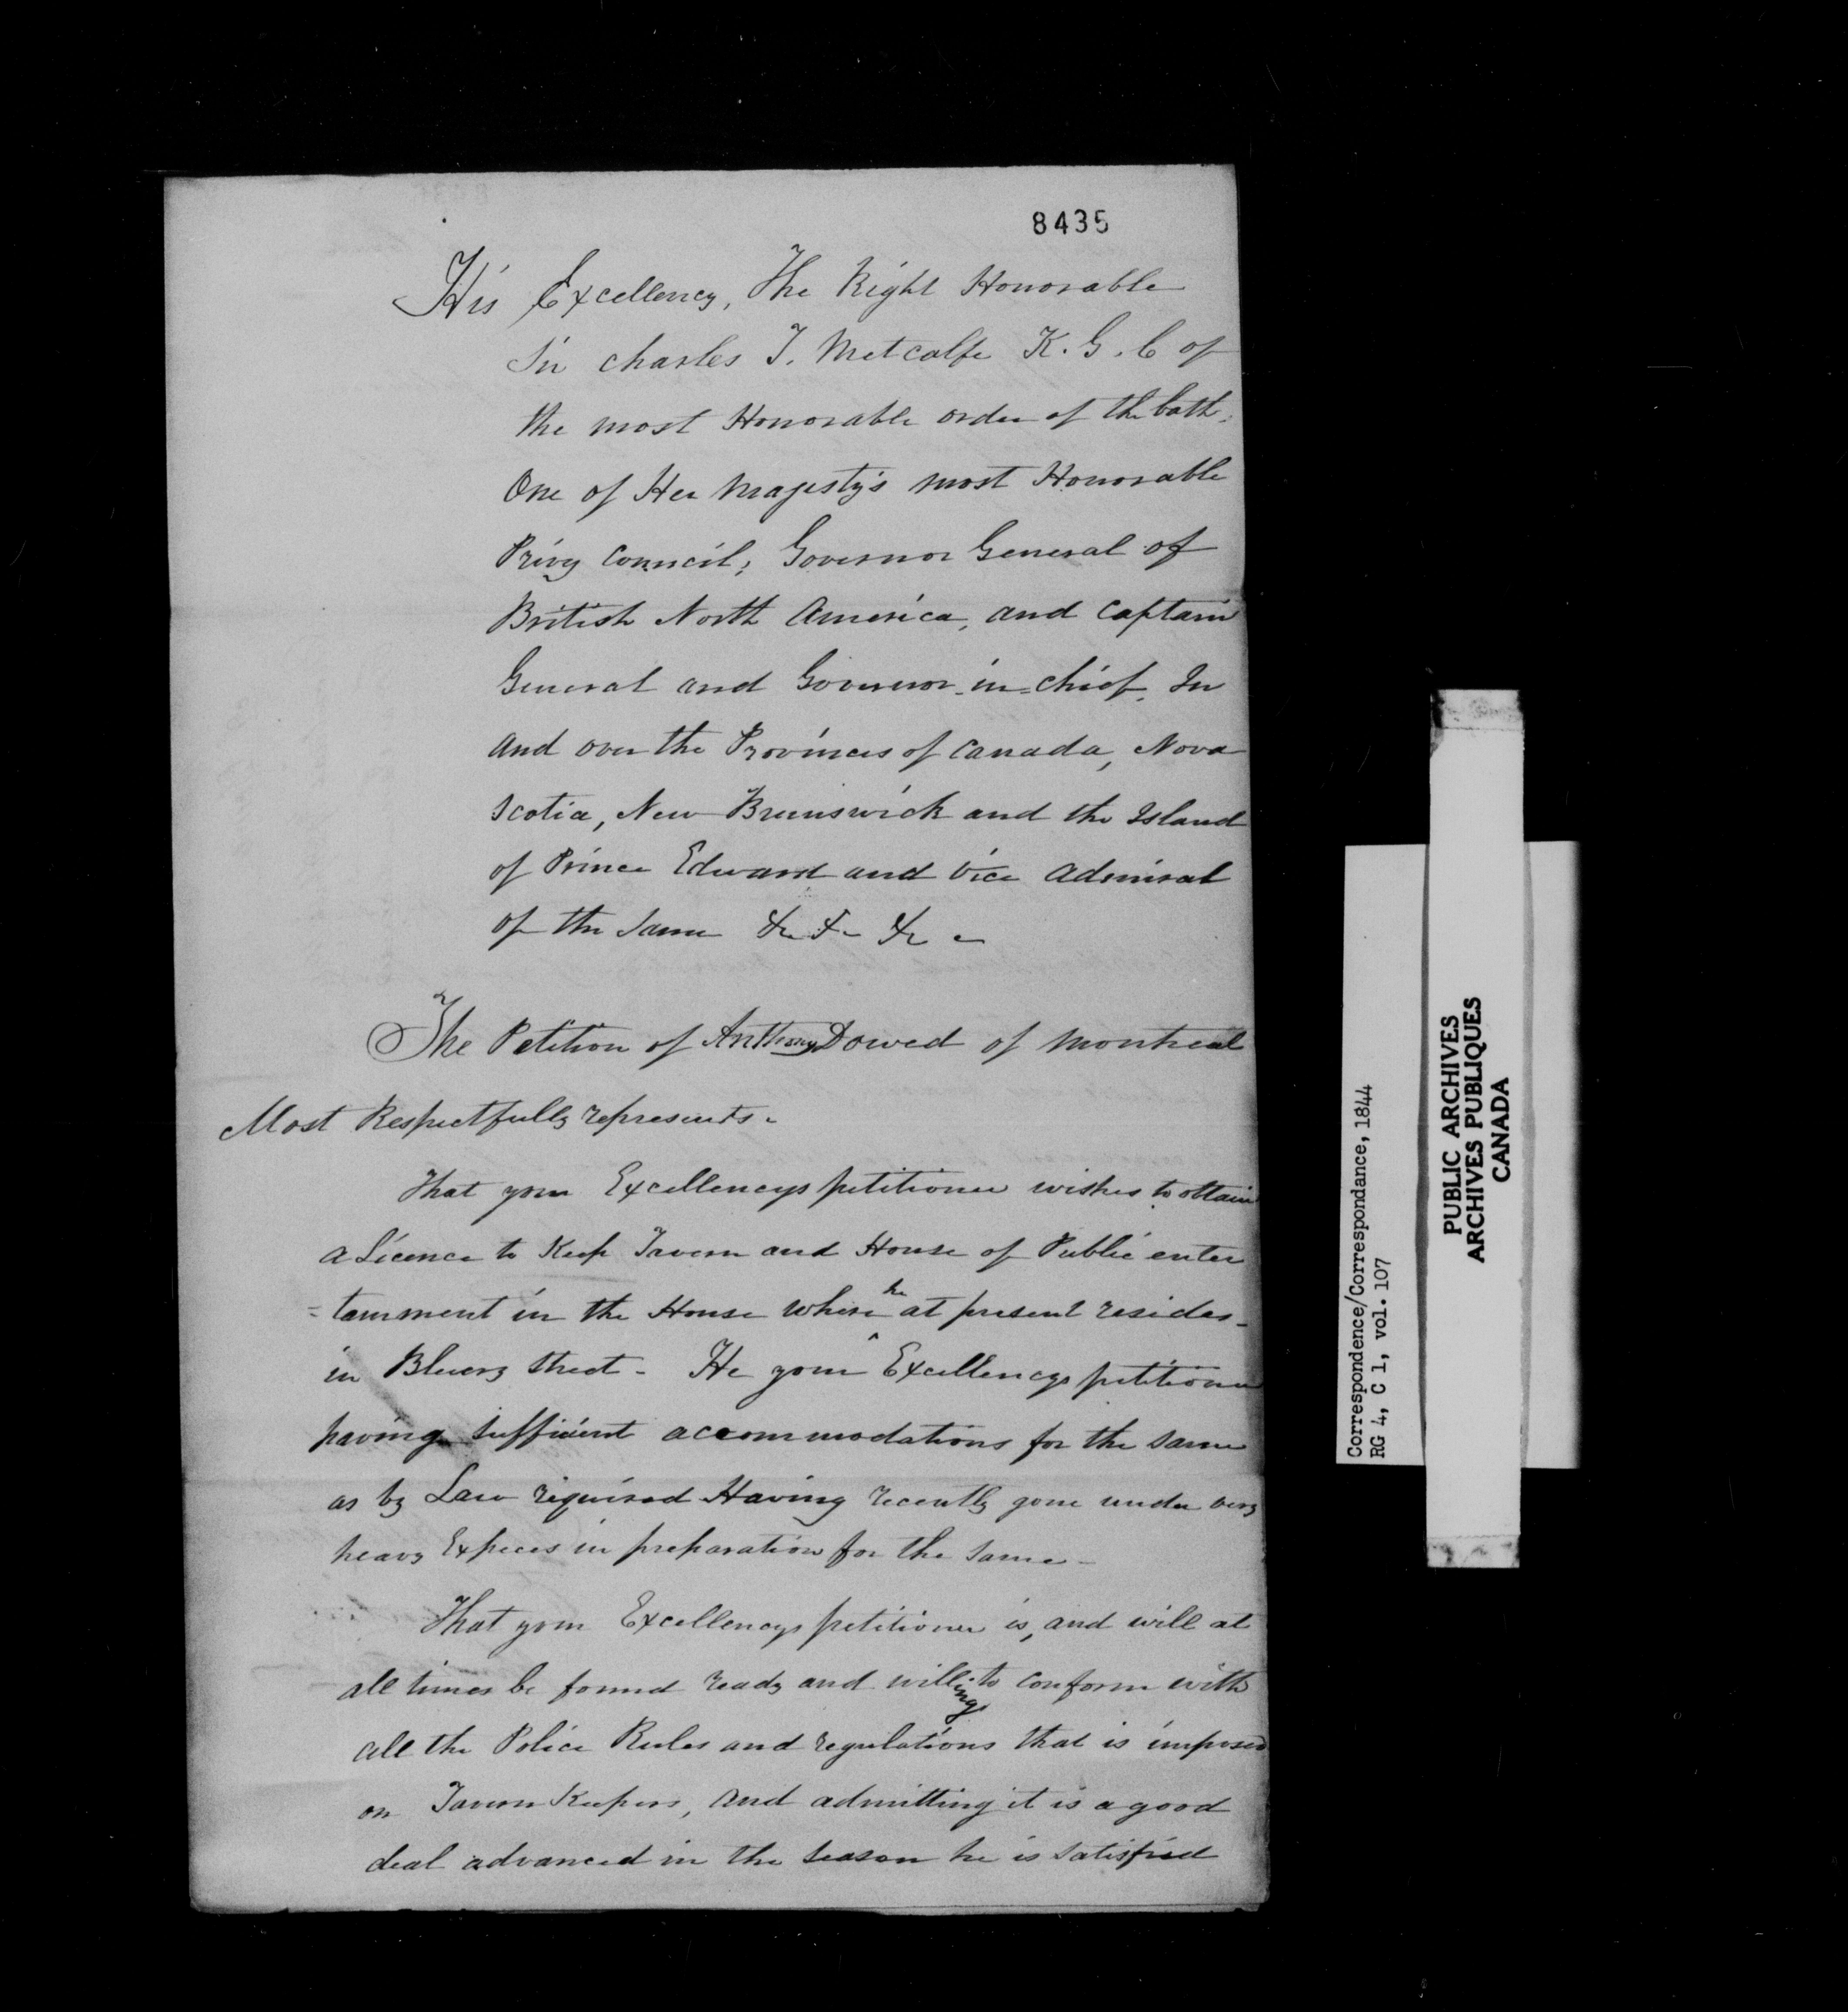 8435
His Excellency, The Right Honorable
Sir Charles T. Metcalfe K. G. C of
the most Honorable order of the bath,
One of Her Magesty's most Honorable
Privy Council, Governor General of
British North America, and Captain
General and Governor in=chief, In
and over the Provinces of Canada, Nova
Scotia, New Brunswick and the Island
of Prince Edward and Vice Admiral
of the same &c &c &c
The Petition of Anthony Dowed of Montreal
Most Respectfully represents.
That your Excellencys petitioner wishes to obtain
a Licence to Keep Tavern and House of Public enter
=tainment in the House where he at present resides -
in Bleury Street - He your Excellencys petitioner
having sufficient accommodations for the same
as by Law required Having recently gone under very
heavy Expeces in preparation for the same -
That your Excellencys petitioner is, and will at
all times be found ready and willing to conform with
all the Police Rules and regulations that is imposed
on Tavern Keepers, and admitting it is a good
deal advanced in the season he is satisfied
Correspondence/Correspondance, 1844
RG 4, C 1, vol. 107
PUBLIC ARCHIVES
ARCHIVES PUBLIQUES
CANADA